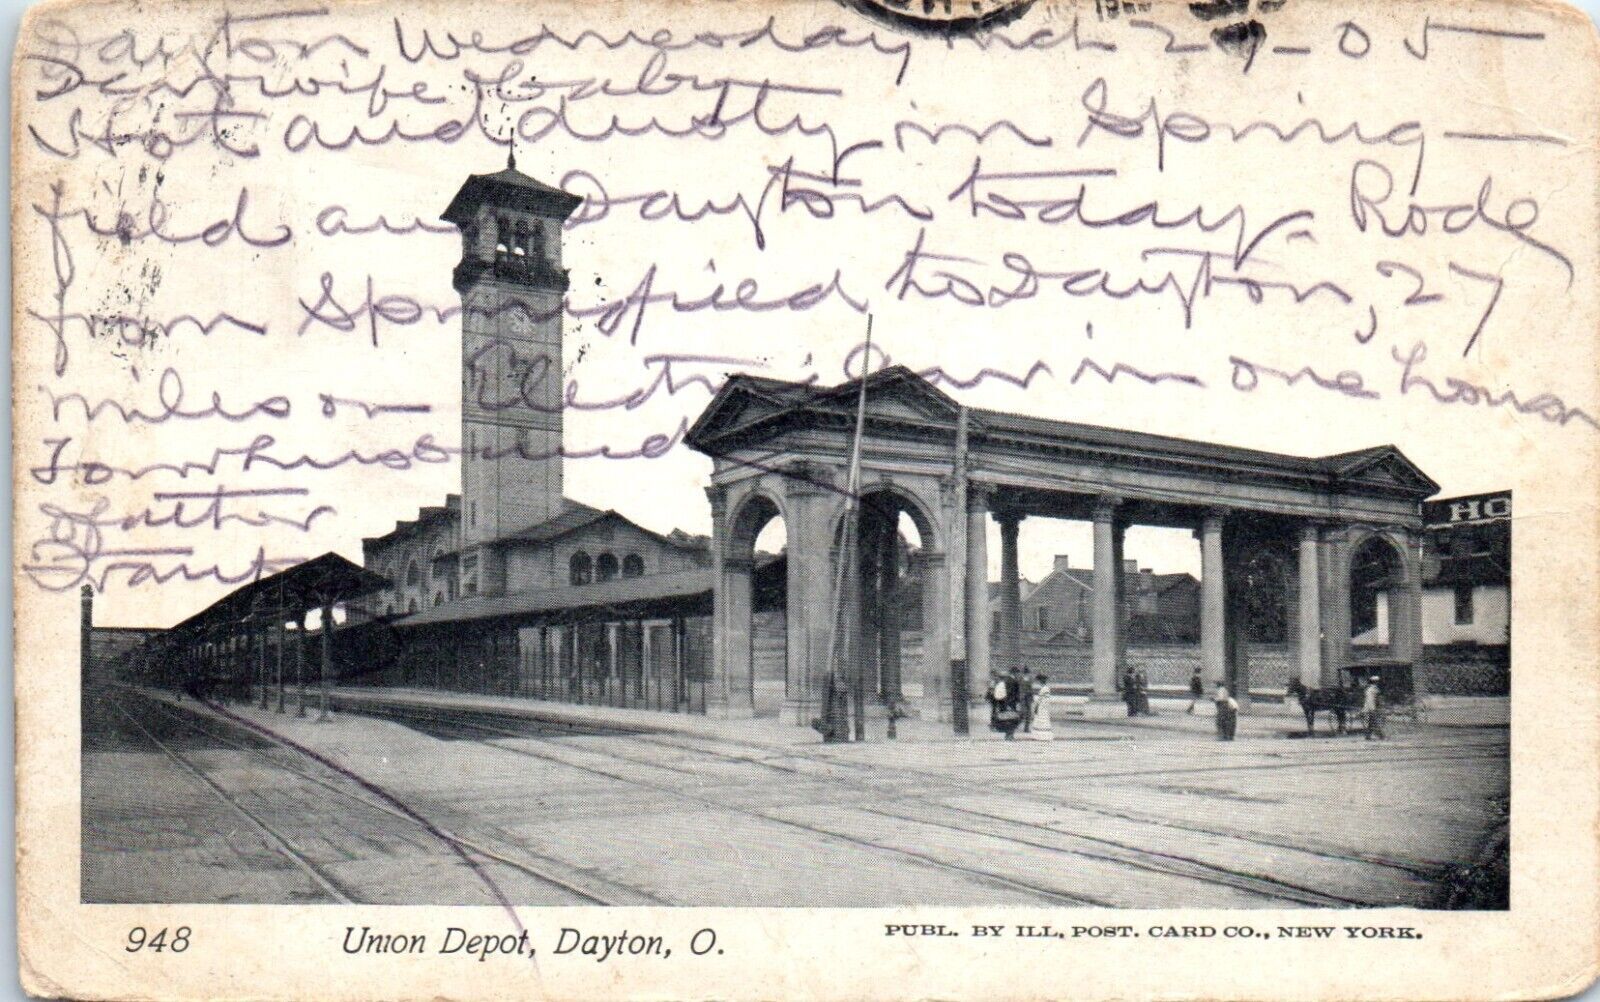 Dayton Wednesday Mch 29-05
Dear wife & baby
Hot and dusty in Spring-
field and Dayton today. Rode
from Springfield to Dayton, 27
miles on Electric Car in one hour
Your husband
& father
Frank
HO
948
Union Depot, Dayton, O.
PUBL. BY ILL. POST. CARD CO., NEW YORK.